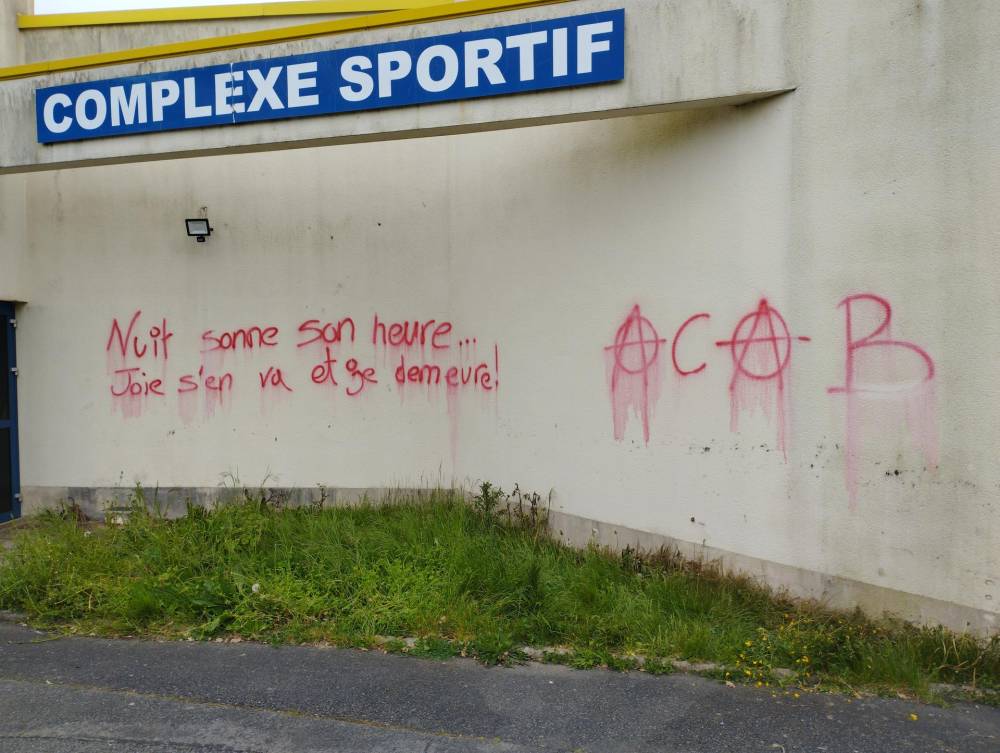 COMPLEXE SPORTIF
Nuit sonne son heure...
Joie s'en va et je demeure!
ACAB